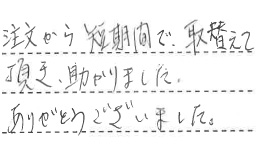 注文から短期間で、取替えて
頂き、助かりました。
ありがとうございました。